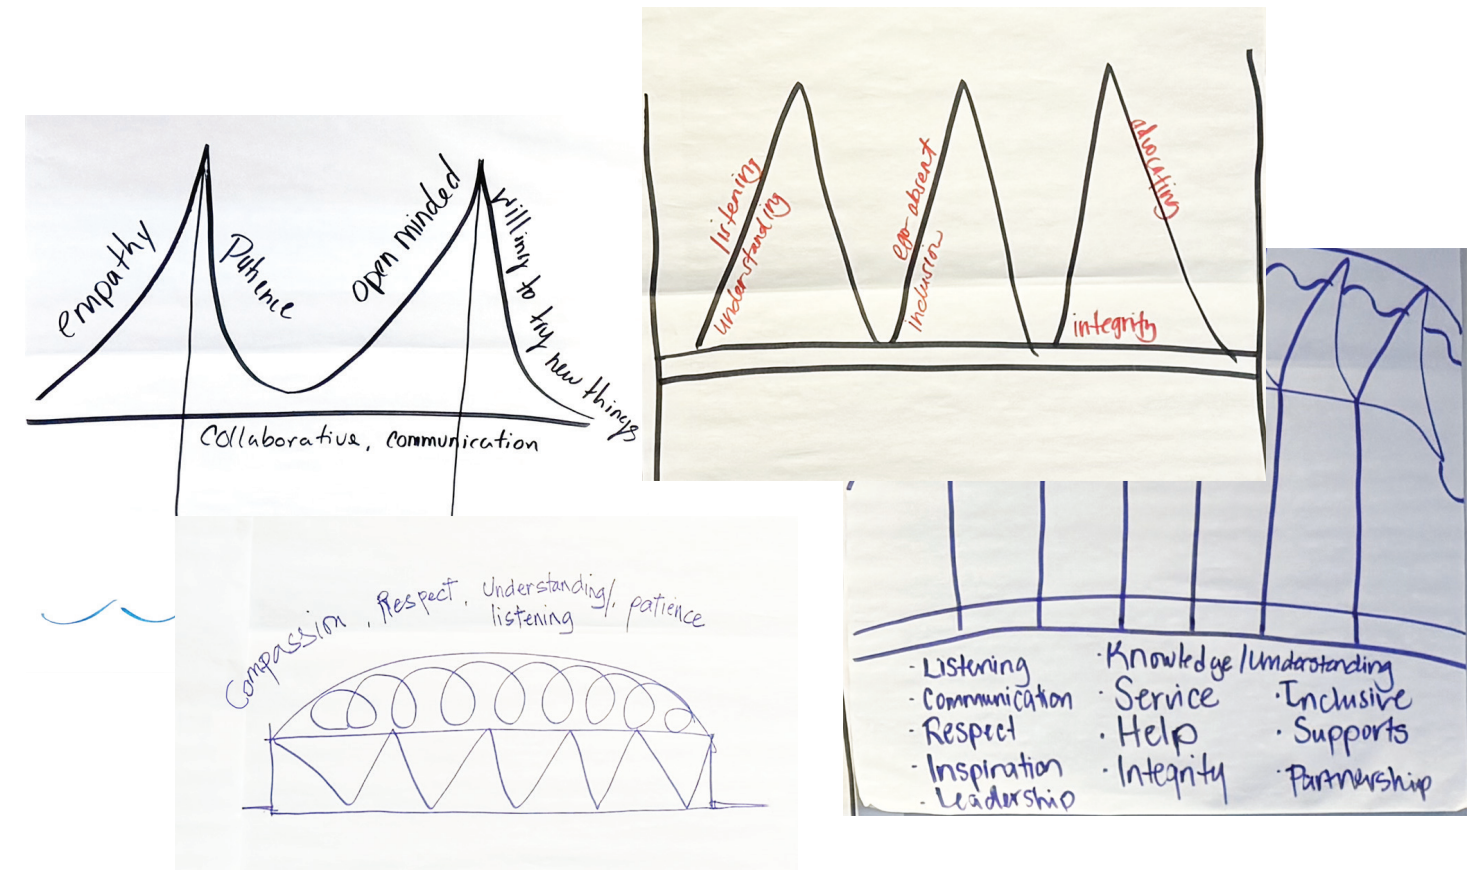 empathy
Patience
open minded
willing to try new things
Collaborative, Communication
listening
understanding
ego-absent
inclusion
advocating
integrity
Compassion, Respect, Understanding/, patience
listening
· Listening
· Communication
· Respect
· Inspiration
· Leadership
· Knowledge/Understanding
· Service
· Help
· Integrity
· Inclusive
· Supports
· Partnership